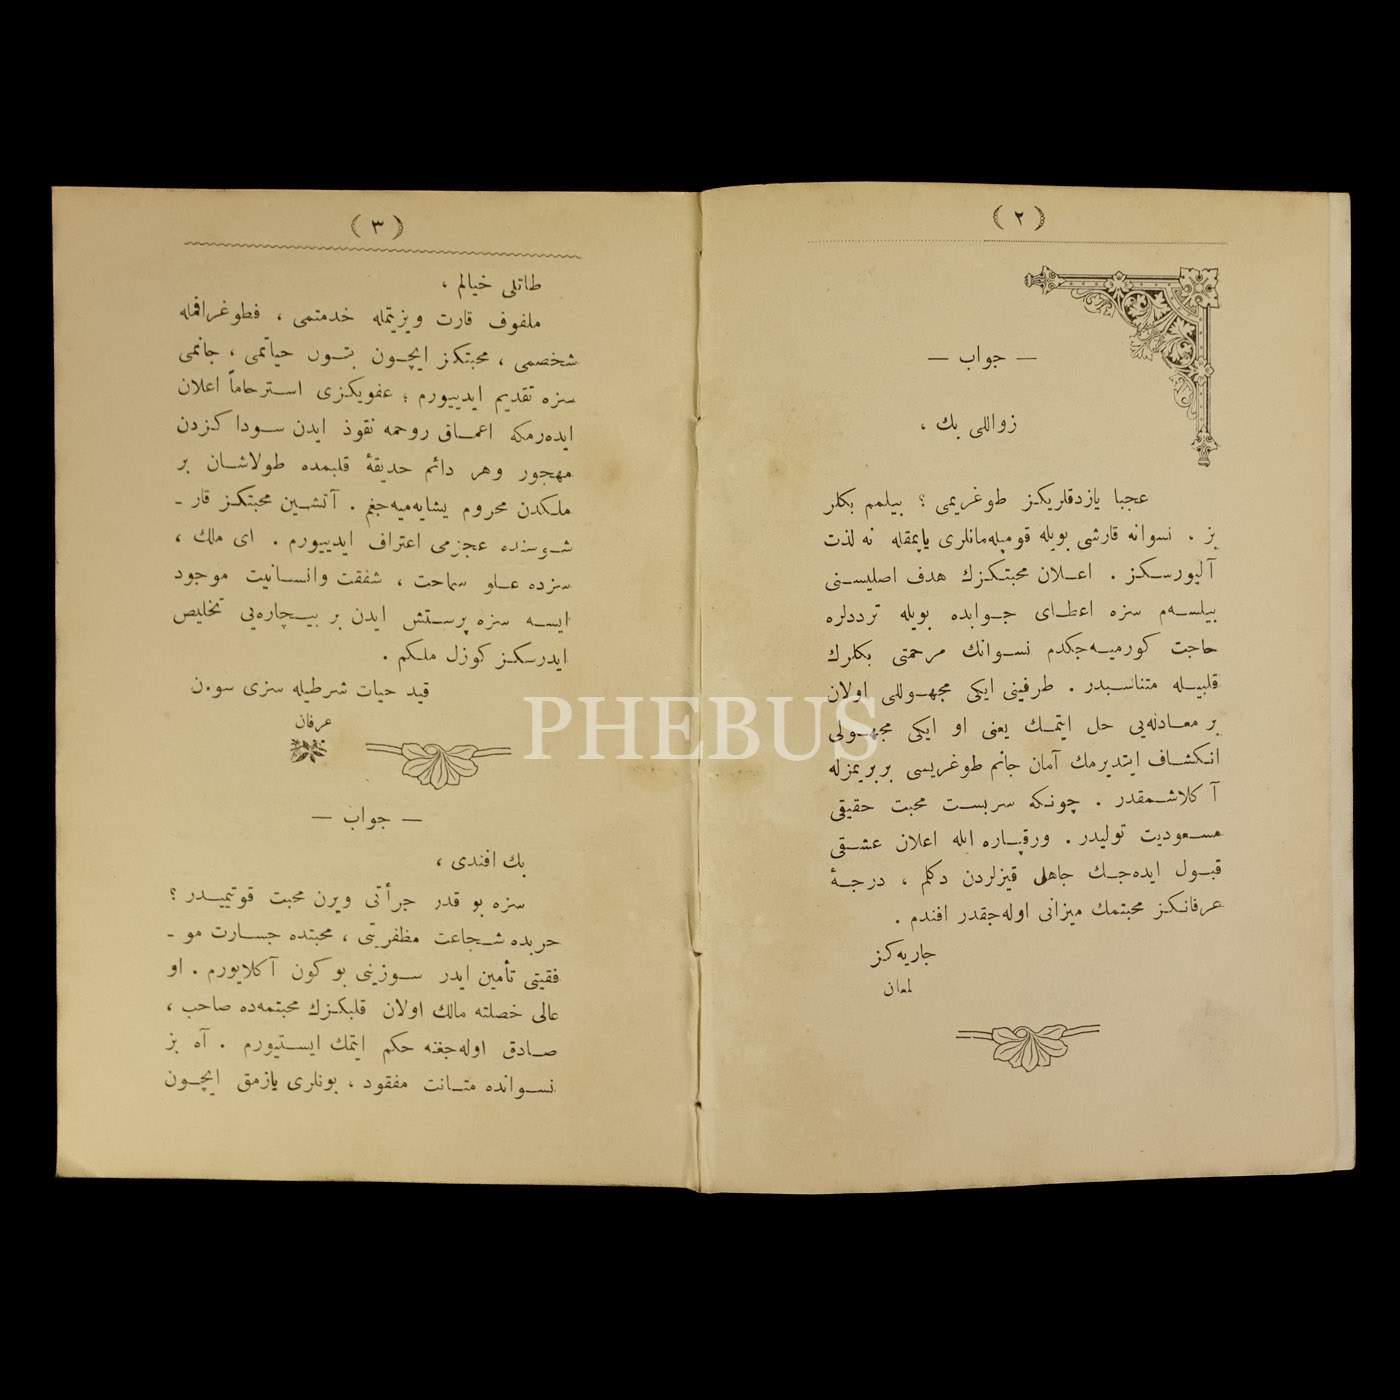 ( ٢ )
— جواب —
زواللی بك ،
عجبا یازدقلریكز طوغریمی ؟ بیلمم بكلر
بز ، نسوانه قارشی بویله قومپله‌مانلری یاپمقله نه لذت
آلیورسكز . اعلان محبتكزك هدف اصلیسنی
بیلسه‌م سزه اعطای جوابده بویله ترددلره
حاجت كورمیه‌جكدم نسوانك مرحمتی بكلرك
قلبیله متناسبدر . طرفینی ایكی مجهوللی اولان
بر معادله‌یی حل ایتمك یعنی او ایكی مجهولی
انكشاف ایتدیرمك آمان جانم طوغریسی بربریمزله
آكلاشمقدر . چونكه سربست محبت حقیقی
مسعودیت تولیدر . ورقپاره ایله اعلان عشقی
قبول ایده‌جك جاهل قیزلردن دكلم ، درجهٔ
عرفانكز محبتمك میزانی اوله‌جقدر افندم .
جاریه‌كز
لمعان
( ٣ )
طاتلی خیالم ،
ملفوف قارت ویزیتمله خدمتمی ، فطوغرافمله
شخصمی ، محبتكز ایچون بتون حیاتمی ، جانمی
سزه تقدیم ایدییورم ؛ عفویكزی استرحاماً اعلان
ایده‌رمكه اعماق روحمه نفوذ ایدن سودا كزدن
مهجور وهر دائم حدیقهٔ قلبمده طولاشان بر
ملكدن محروم یشایه‌میه‌جغم . آتشین محبتكز قار -
شوسنده عجزمی اعتراف ایدییورم . ای ملك ،
سزده علو سماحت ، شفقت وانسانیت موجود
ایسه سزه پرستش ایدن بر بیچاره‌یی تخلیص
ایدرسكز كوزل ملكم .
قید حیات شرطیله سزی سون
عرفان
— جواب —
بك افندی ،
سزه بو قدر جرأتی ویرن محبت قوتیمیدر ؟
حربده شجاعت مظفریتی ، محبتده جسارت مو -
فقیتی تأمین ایدر سوزینی بو كون آكلایورم . او
عالی خصلته مالك اولان قلبكزك محبتمه‌ده صاحب ،
صادق اوله‌جغنه حكم ایتمك ایستیورم . آه بز
نسوانده متانت مفقود ، بونلری یازمق ایچون
PHEBUS